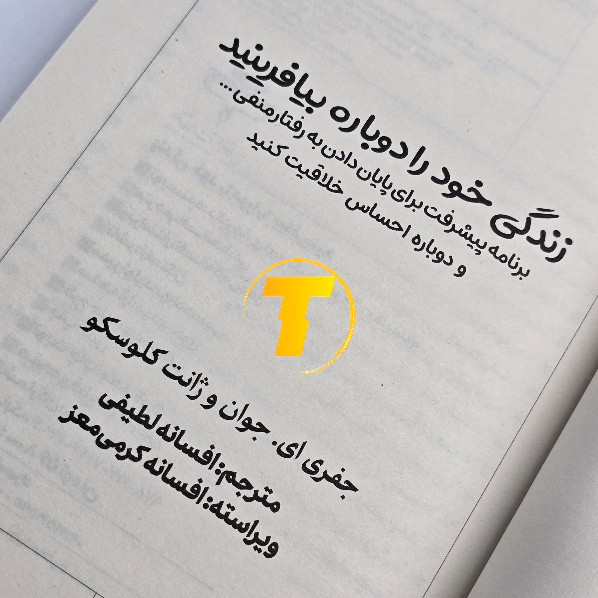 زندگی خود را دوباره بیافرینید
برنامه پیشرفت برای پایان دادن به رفتار منفی ...
و دوباره احساس خلاقیت کنید
T
جفری ای. جوان و ژانت کلوسکو
مترجم: افسانه لطیفی
ویراسته: افسانه کرمی‌معز